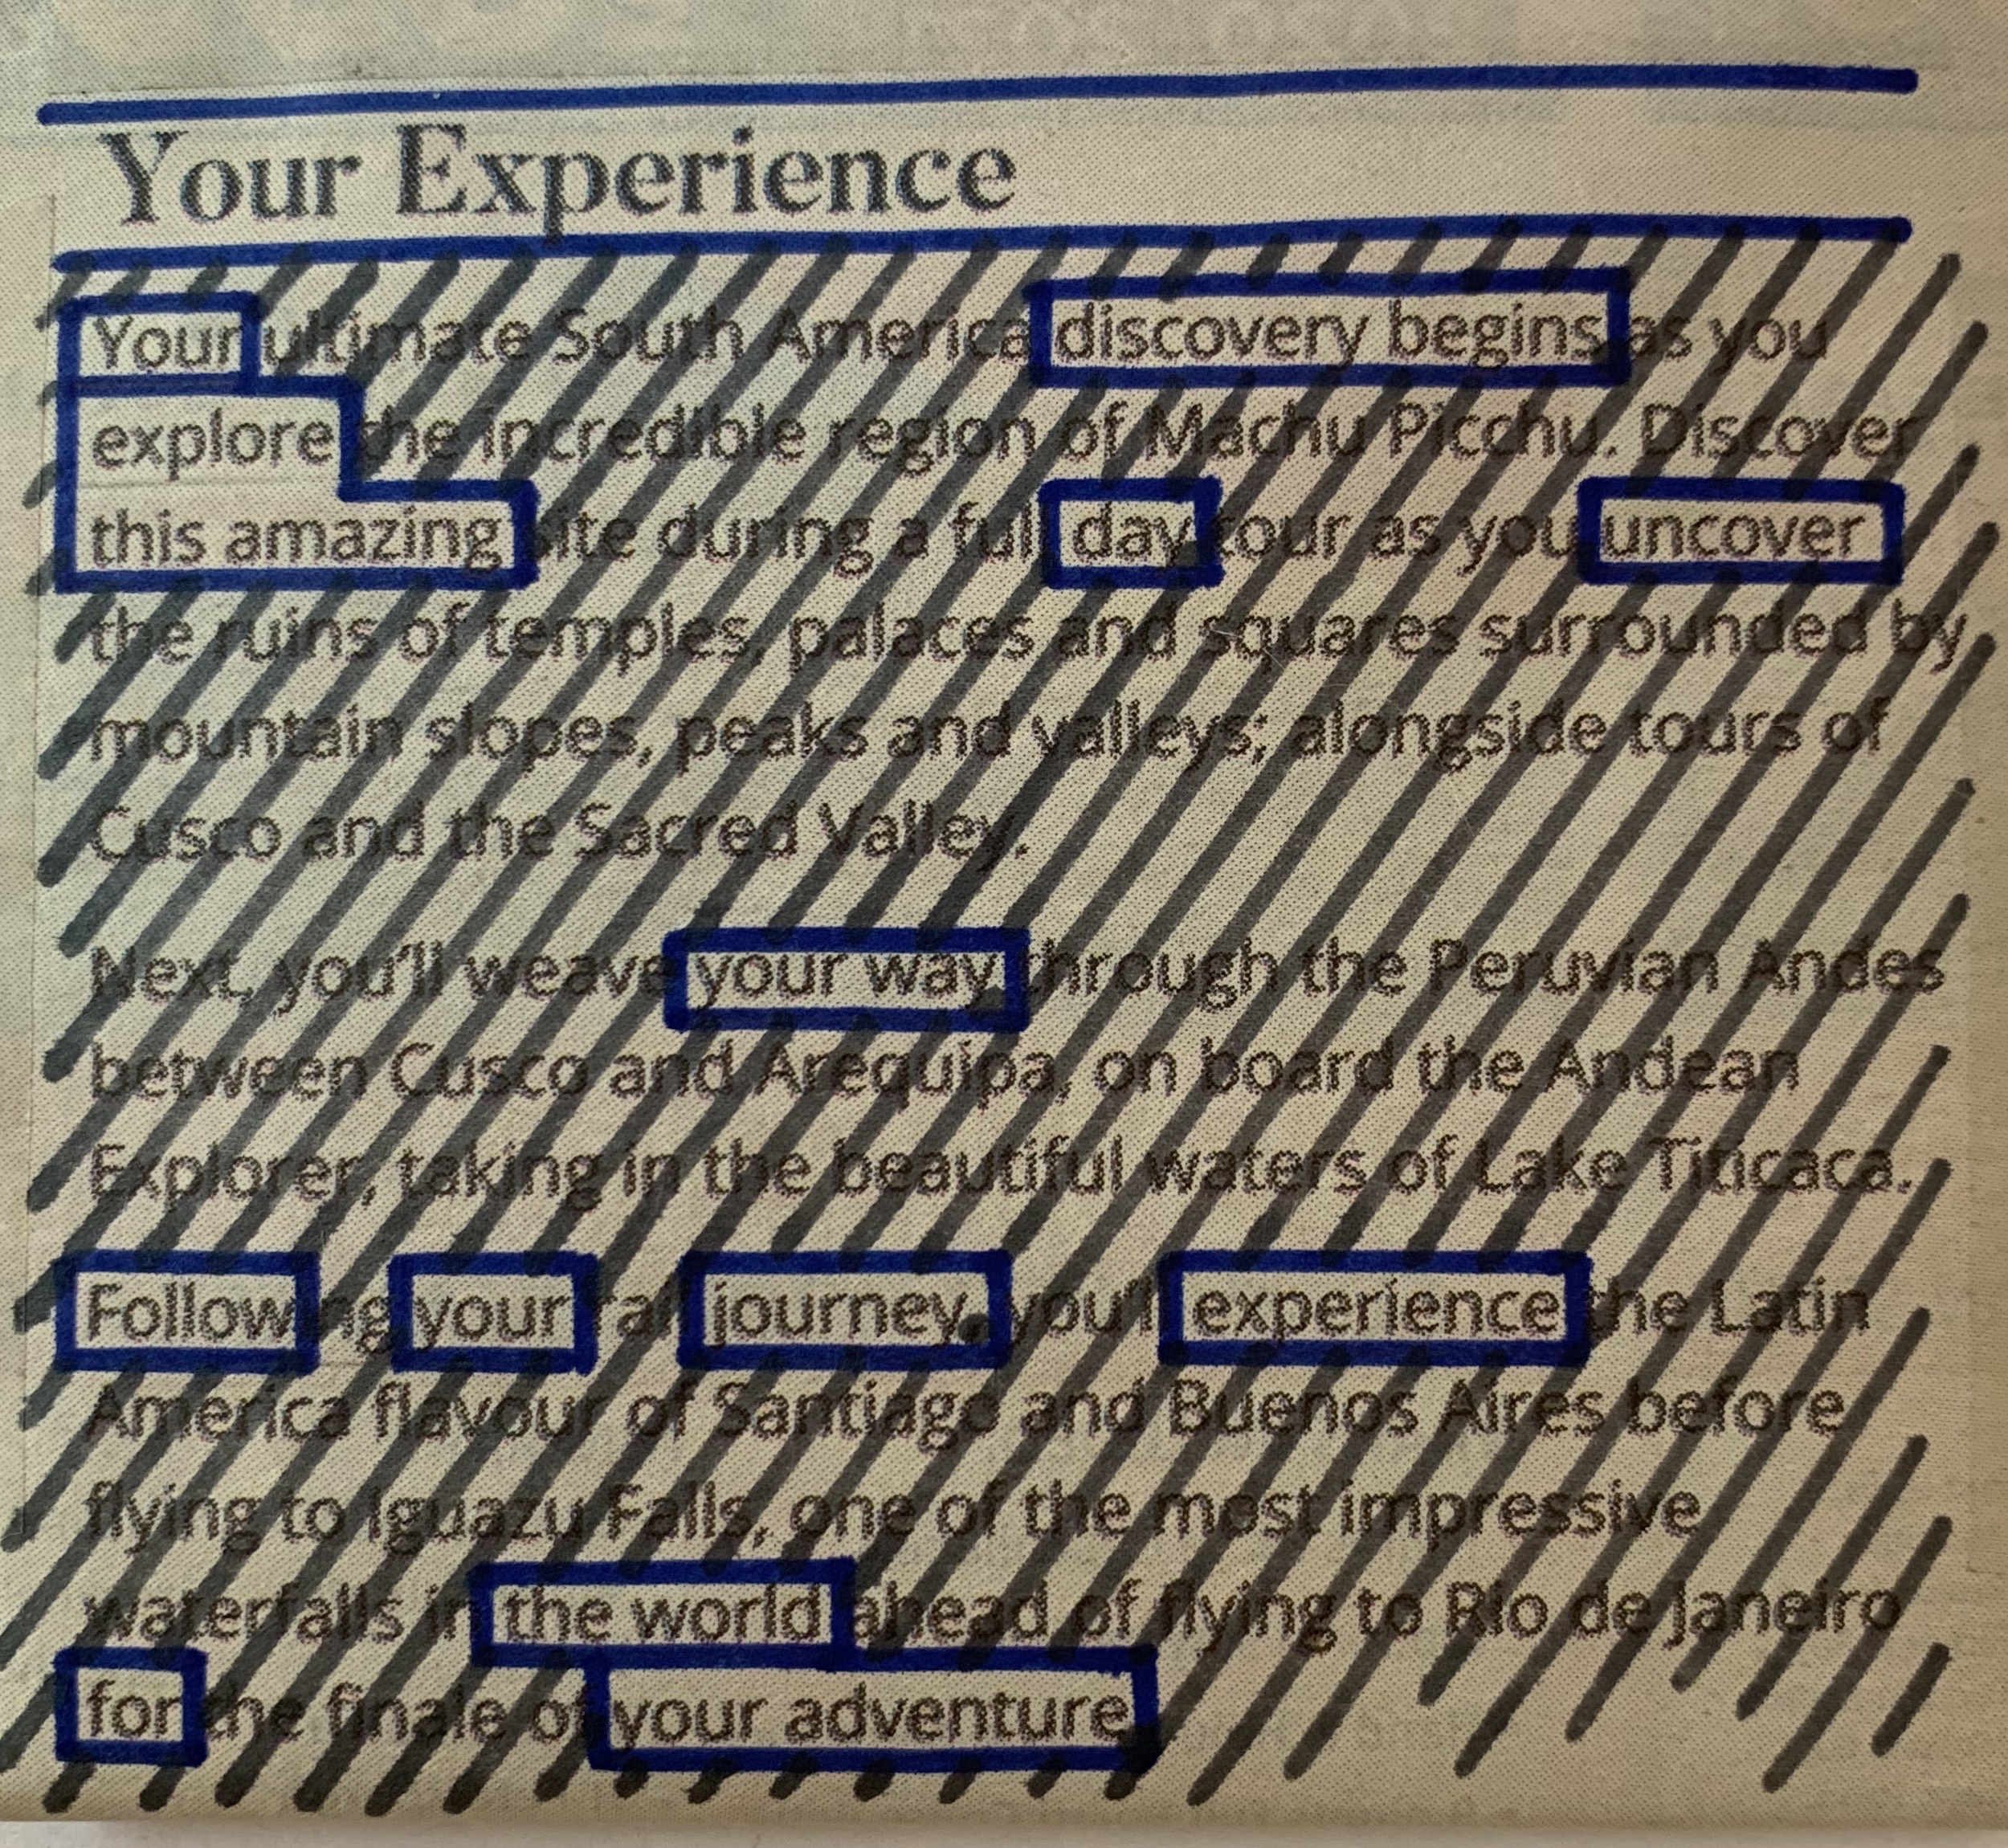 Your Experience
Your ultimate South America discovery begins as you
explore the incredible region of Machu Picchu. Discover
this amazing site during a full day tour as you uncover
the ruins of temples, palaces and squares surrounded by
mountain slopes, peaks and valleys; alongside tours of
Cusco and the Sacred Valley.
Next, you'll weave your way through the Peruvian Andes
between Cusco and Arequipa, on board the Andean
Explorer, taking in the beautiful waters of Lake Titicaca.
Following your rail journey, you'll experience the Latin
America flavour of Santiago and Buenos Aires before
flying to Iguazu Falls, one of the most impressive
waterfalls in the world ahead of flying to Rio de Janeiro
for the finale of your adventure